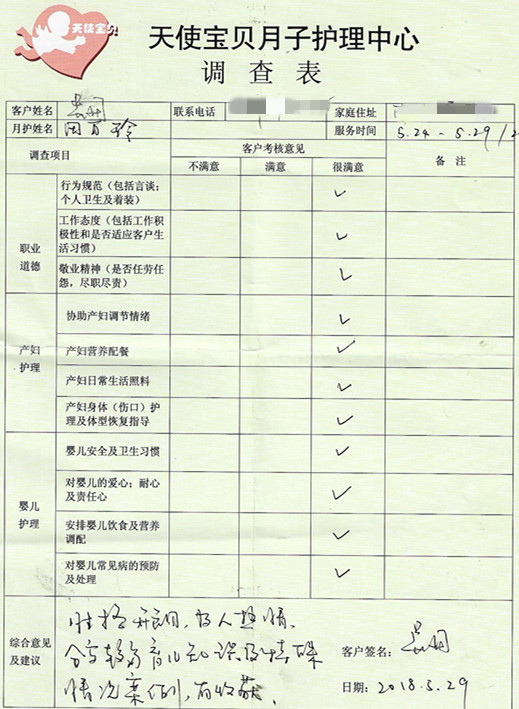 天使宝贝
天使宝贝月子护理中心
调查表
客户姓名 联系电话 家庭住址
月护姓名 服务时间 5.24 - 5.29
调查项目 客户考核意见 备注
不满意 满意 很满意
职业道德
行为规范（包括言谈；
个人卫生及着装） ✓
工作态度（包括工作积
极性和是否适应客户生
活习惯） ✓
敬业精神（是否任劳任
怨，尽职尽责） ✓
产妇护理
协助产妇调节情绪 ✓
产妇营养配餐 ✓
产妇日常生活照料 ✓
产妇身体（伤口）护
理及体型恢复指导 ✓
婴儿护理
婴儿安全及卫生习惯 ✓
对婴儿的爱心；耐心
及责任心 ✓
安排婴儿饮食及营养
调配 ✓
对婴儿常见病的预防
及处理 ✓
综合意见
及建议
性格开朗，为人热情。
分享较多育儿知识及特殊
情况案例，有收获。
客户签名：
日期：2018.5.29